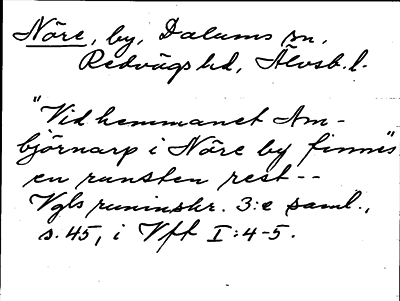 Nöre, by, Dalums sn,
Redvägs hd, Älvsb. l.
"Vid hemmanet Am-
björnarp i Nöre by finnes"
en runsten rest--
Vgls runinskr. 3:e saml.,
s. 45, i Vft I:4-5.